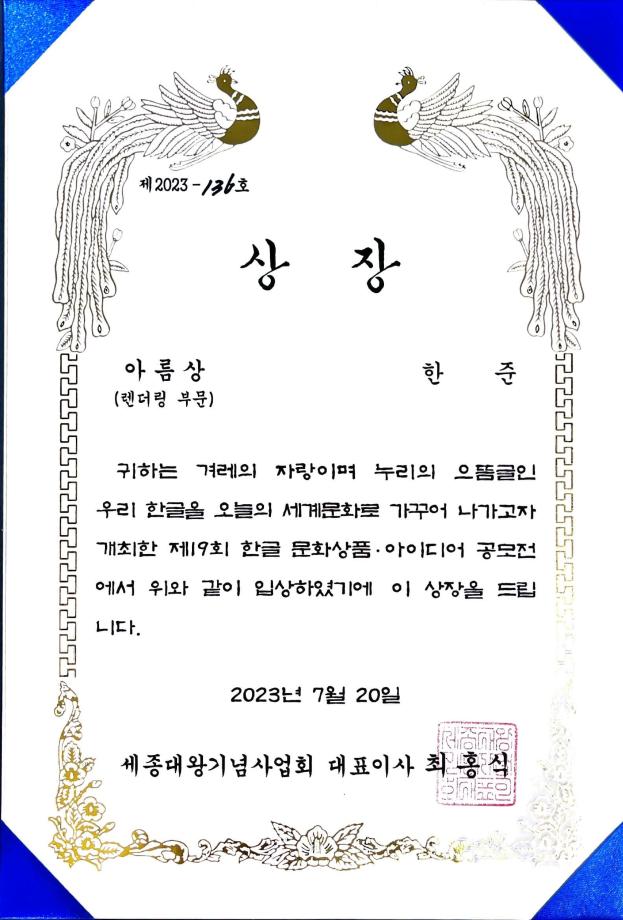 제2023-136호
상 장
아름상 한 준
(렌더링 부문)
귀하는 겨레의 자랑이며 누리의 으뜸글인
우리 한글을 오늘의 세계문화로 가꾸어 나가고자
개최한 제19회 한글 문화상품·아이디어 공모전
에서 위와 같이 입상하였기에 이 상장을 드립
니다.
2023년 7월 20일
세종대왕기념사업회 대표이사 최홍식